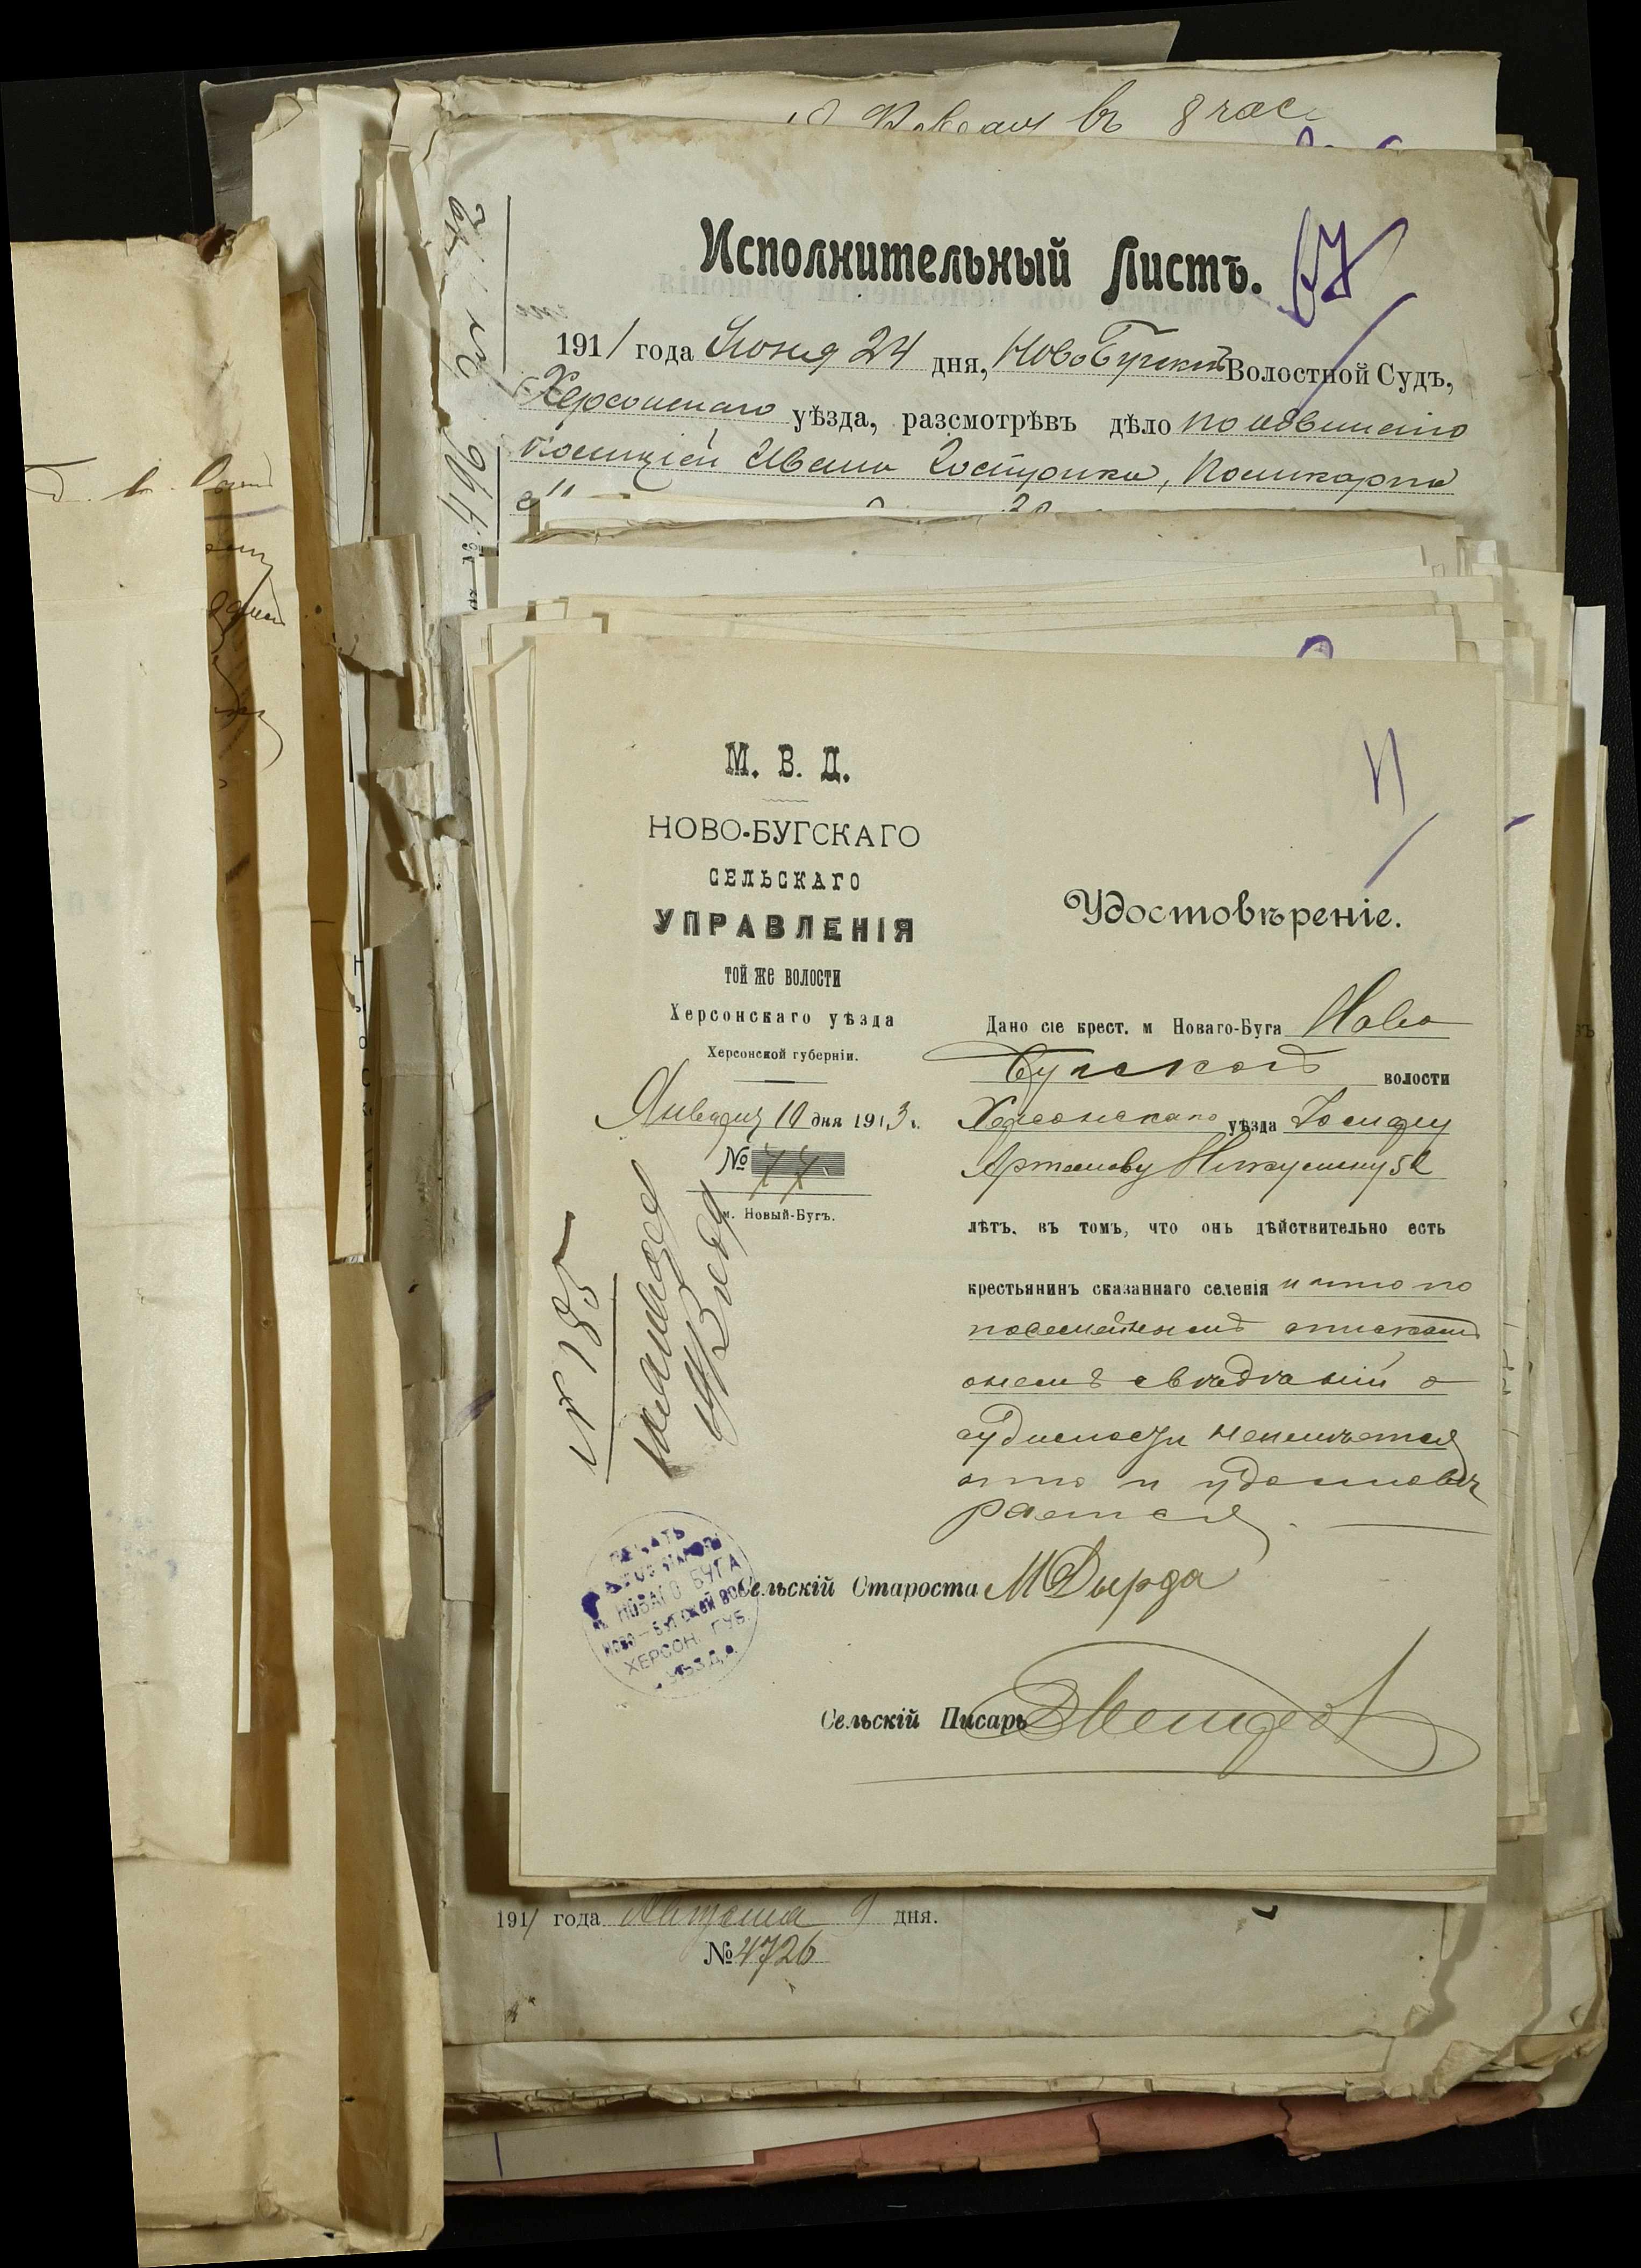 въ 8 час
Исполнительный Листъ.
67
1911 года Июня 24 дня, Ново Бугский Волостной Судъ,
Херсонскаго уѣзда, разсмотрѣвъ дѣло по обвинению
полицией Ивана Костурика, Поликарпа
№ 496
11
М. В. Д.
НОВО-БУГСКАГО
СЕЛЬСКАГО
УПРАВЛЕНІЯ
ТОЙ ЖЕ ВОЛОСТИ
Херсонскаго уѣзда
Херсонской губерніи.
Января 10 дня 1913 г.
№ 77
м. Новый-Бугъ.
№ 185
Удостовѣреніе.
Дано сіе крест. м Новаго-Буга Ново
Бугской волости
Херсонскаго уѣзда
Артамову 52
лѣтъ, въ томъ, что онъ дѣйствительно есть
крестьянинъ сказаннаго селенія и что по
посемейнымъ спискамъ
о немъ свѣдѣній о
судимости неимѣется
что и удостовѣ
ряется.
Сельскій Староста М Дырда
Сельскій Писарь
ПЕЧАТЬ
НОВАГО БУГА
НОВО-БУГСКОЙ ВОЛ
ХЕРСОН. ГУБ.
УѢЗДА
1911 года Августа 9 дня.
№ 4726